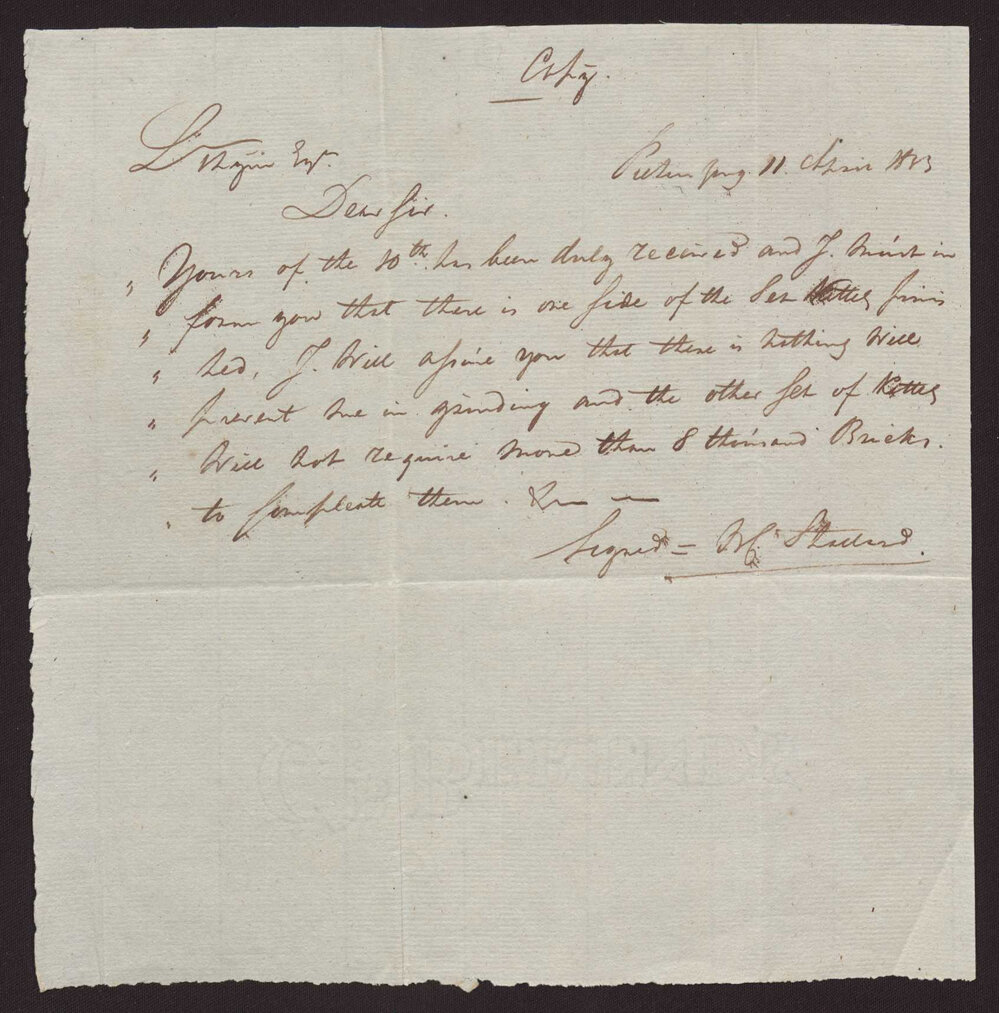 Copy.
Esqr. 11. April 1813
Dear Sir.
" Yours of the 10th. has been duly received and I must in
" form you that there is one side of the Set Kittles finis
" hed, I Will assure you that there is nothing Will
" prevent me in grinding and the other Set of Kittles
" Will not require more than 8 thousand Bricks.
" to compleate them. &c
Signed = Wm. Stallard.